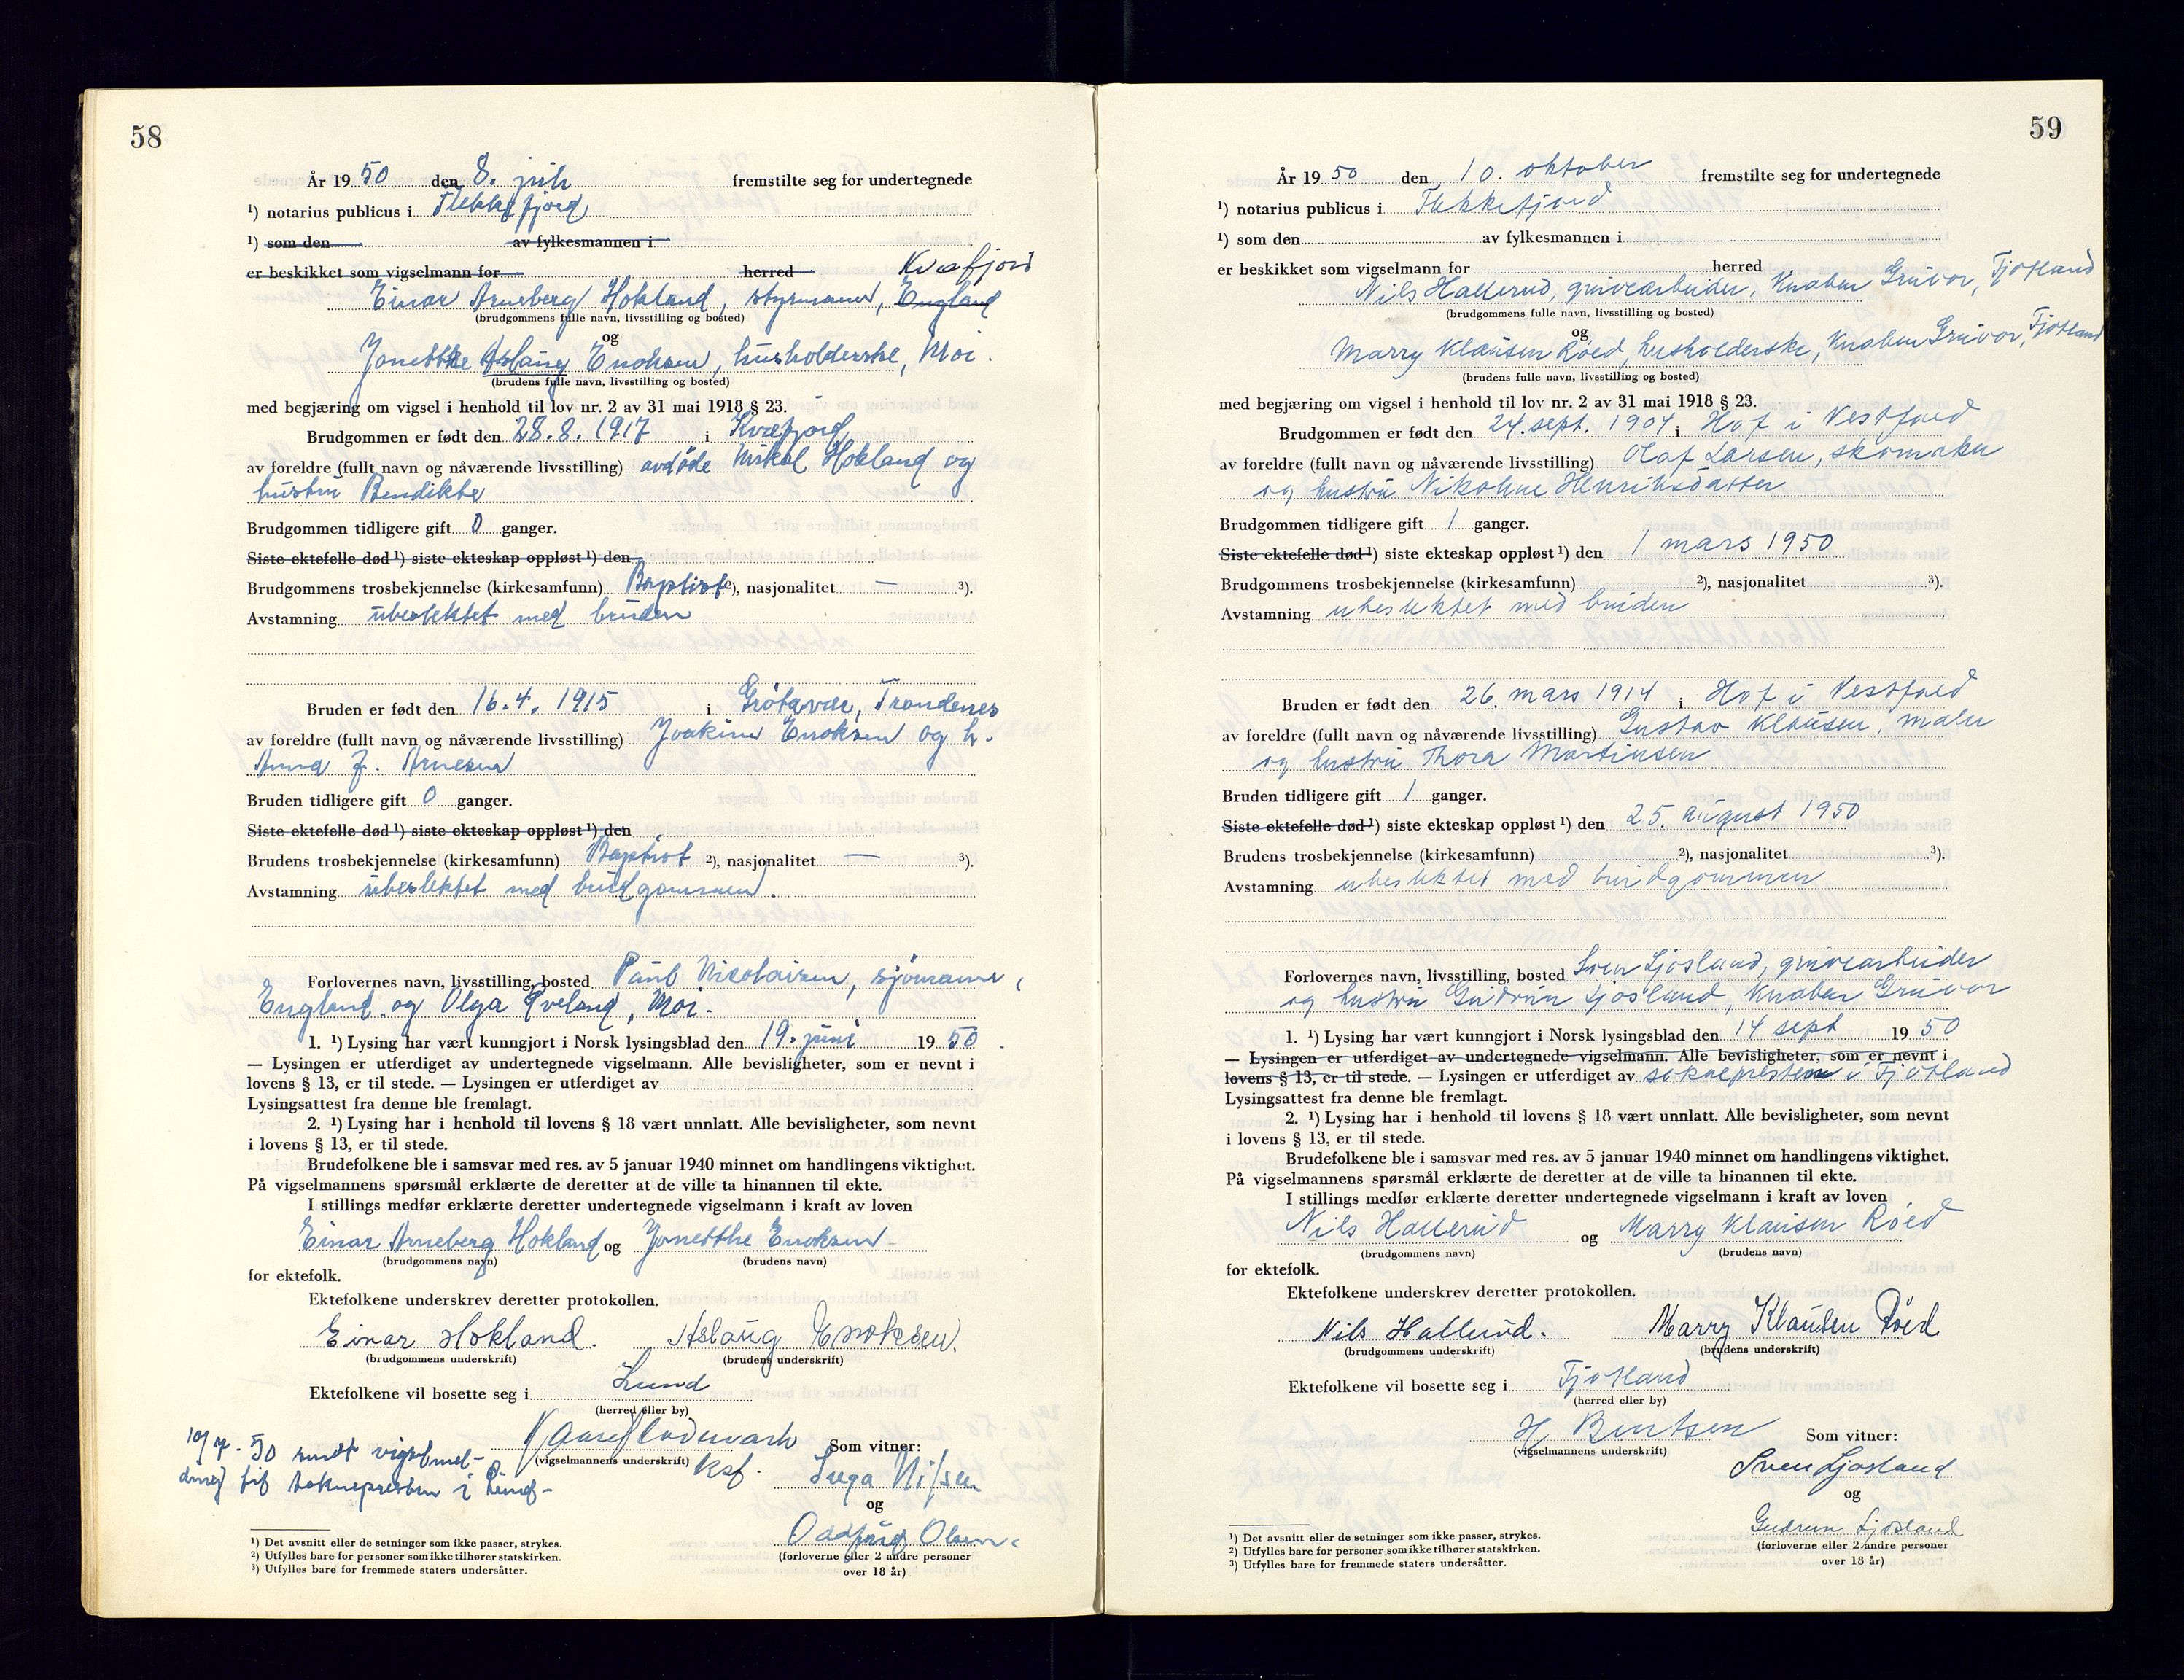 58
År 1950 den 8. juli fremstilte seg for undertegnede
¹) notarius publicus i Flekkefjord
¹) som den av fylkesmannen i
er beskikket som vigselmann for herred Kvæfjord
Einar Arneberg Hokland, styrmann, England
(brudgommens fulle navn, livsstilling og bosted)
og
Jonetthe Aslaug Enoksen, husholderske, Moi.
(brudens fulle navn, livsstilling og bosted)
med begjæring om vigsel i henhold til lov nr. 2 av 31 mai 1918 § 23.
Brudgommen er født den 28.8.1917 i Kvæfjord
av foreldre (fullt navn og nåværende livsstilling) avdøde Mikal Hokland og
hustru Bendikte
Brudgommen tidligere gift 0 ganger.
Siste ektefelle død ¹) siste ekteskap oppløst ¹) den
Brudgommens trosbekjennelse (kirkesamfunn) Baptist ²), nasjonalitet — ³).
Avstamning ubeslektet med bruden
Bruden er født den 16.4.1915 i Grøtavær, Trondenes
av foreldre (fullt navn og nåværende livsstilling) Joakim Enoksen og h.
Anna J. Arnesen
Bruden tidligere gift 0 ganger.
Siste ektefelle død ¹) siste ekteskap oppløst ¹) den
Brudens trosbekjennelse (kirkesamfunn) Baptist ²), nasjonalitet — ³).
Avstamning ubeslektet med brudgommen.
Forlovernes navn, livsstilling, bosted Paul Nicolaisen, sjømann,
England og Olga Eveland, Moi.
1. ¹) Lysing har vært kunngjort i Norsk lysingsblad den 19. juni 1950.
— Lysingen er utferdiget av undertegnede vigselmann. Alle bevisligheter, som er nevnt i
lovens § 13, er til stede. — Lysingen er utferdiget av
Lysingsattest fra denne ble fremlagt.
2. ¹) Lysing har i henhold til lovens § 18 vært unnlatt. Alle bevisligheter, som nevnt
i lovens § 13, er til stede.
Brudefolkene ble i samsvar med res. av 5 januar 1940 minnet om handlingens viktighet.
På vigselmannens spørsmål erklærte de deretter at de ville ta hinannen til ekte.
I stillings medfør erklærte deretter undertegnede vigselmann i kraft av loven
Einar Arneberg Hokland og Jonetthe Enoksen
(brudgommens navn) (brudens navn)
for ektefolk.
Ektefolkene underskrev deretter protokollen.
Einar Hokland. Aslaug Enoksen.
(brudgommens underskrift) (brudens underskrift)
Ektefolkene vil bosette seg i Lund
(herred eller by)
10/7.50 sendt vigselmel-
ding til soknepresten i Lund-
(vigselmannens underskrift) Ksf.
Som vitner:
Nilsen
og
Oddfrid Olsen.
(forloverne eller 2 andre personer
over 18 år)
¹) Det avsnitt eller de setninger som ikke passer, strykes.
²) Utfylles bare for personer som ikke tilhører statskirken.
³) Utfylles bare for fremmede staters undersåtter.
59
År 1950 den 10. oktober fremstilte seg for undertegnede
¹) notarius publicus i Flekkefjord
¹) som den av fylkesmannen i
er beskikket som vigselmann for herred
Nils Hallerud, gruvearbeider, Knaben Gruver, Fjotland
(brudgommens fulle navn, livsstilling og bosted)
og
Marry Klausen Røed, husholderske, Knaben Gruver, Fjotland
(brudens fulle navn, livsstilling og bosted)
med begjæring om vigsel i henhold til lov nr. 2 av 31 mai 1918 § 23.
Brudgommen er født den 24. sept. 1904 i Hof i Vestfold
av foreldre (fullt navn og nåværende livsstilling) Olaf Larsen, skomaker
og hustru Nikoline Henriksdatter
Brudgommen tidligere gift 1 ganger.
Siste ektefelle død ¹) siste ekteskap oppløst ¹) den 1 mars 1950
Brudgommens trosbekjennelse (kirkesamfunn) ²), nasjonalitet ³).
Avstamning ubeslektet med bruden
Bruden er født den 26. mars 1914 i Hof i Vestfold
av foreldre (fullt navn og nåværende livsstilling) Gustav Klausen, maler
og hustru Thora Martinsen
Bruden tidligere gift 1 ganger.
Siste ektefelle død ¹) siste ekteskap oppløst ¹) den 25. august 1950
Brudens trosbekjennelse (kirkesamfunn) ²), nasjonalitet ³).
Avstamning ubeslektet med brudgommen
Forlovernes navn, livsstilling, bosted Sven Ljosland, gruvearbeider
og hustru Gudrun Ljosland, Knaben Gruver
1. ¹) Lysing har vært kunngjort i Norsk lysingsblad den 14 sept 1950
— Lysingen er utferdiget av undertegnede vigselmann. Alle bevisligheter, som er nevnt i
lovens § 13, er til stede. — Lysingen er utferdiget av soknepresten i Fjotland
Lysingsattest fra denne ble fremlagt.
2. ¹) Lysing har i henhold til lovens § 18 vært unnlatt. Alle bevisligheter, som nevnt
i lovens § 13, er til stede.
Brudefolkene ble i samsvar med res. av 5 januar 1940 minnet om handlingens viktighet.
På vigselmannens spørsmål erklærte de deretter at de ville ta hinannen til ekte.
I stillings medfør erklærte deretter undertegnede vigselmann i kraft av loven
Nils Hallerud og Marry Klausen Røed
(brudgommens navn) (brudens navn)
for ektefolk.
Ektefolkene underskrev deretter protokollen.
Nils Hallerud. Marry Klausen Røed
(brudgommens underskrift) (brudens underskrift)
Ektefolkene vil bosette seg i Fjotland
(herred eller by)
H Bentsen
(vigselmannens underskrift)
Som vitner:
Sven Ljosland
og
Gudrun Ljosland
(forloverne eller 2 andre personer
over 18 år)
¹) Det avsnitt eller de setninger som ikke passer, strykes.
²) Utfylles bare for personer som ikke tilhører statskirken.
³) Utfylles bare for fremmede staters undersåtter.